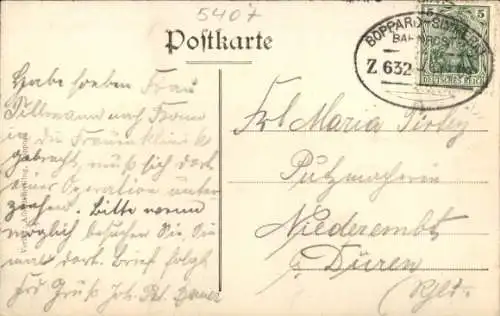 5407
Postkarte
BOPPARD-SIMMERN
BAHNPOST
Z 632
5 5
DEUTSCHES REICH
Habe soeben Frau
Tillmann nach Bonn
in die Frauenklinik
gebracht, muß sich dort
einer Operation unter
ziehen. Bitte wenn
möglich besuchen Sie Sie
mal dort. Brief folgt
Gruß Joh.
Frl Maria
Putzmacherin
Niederembt
b. Düren
(Rhld.)